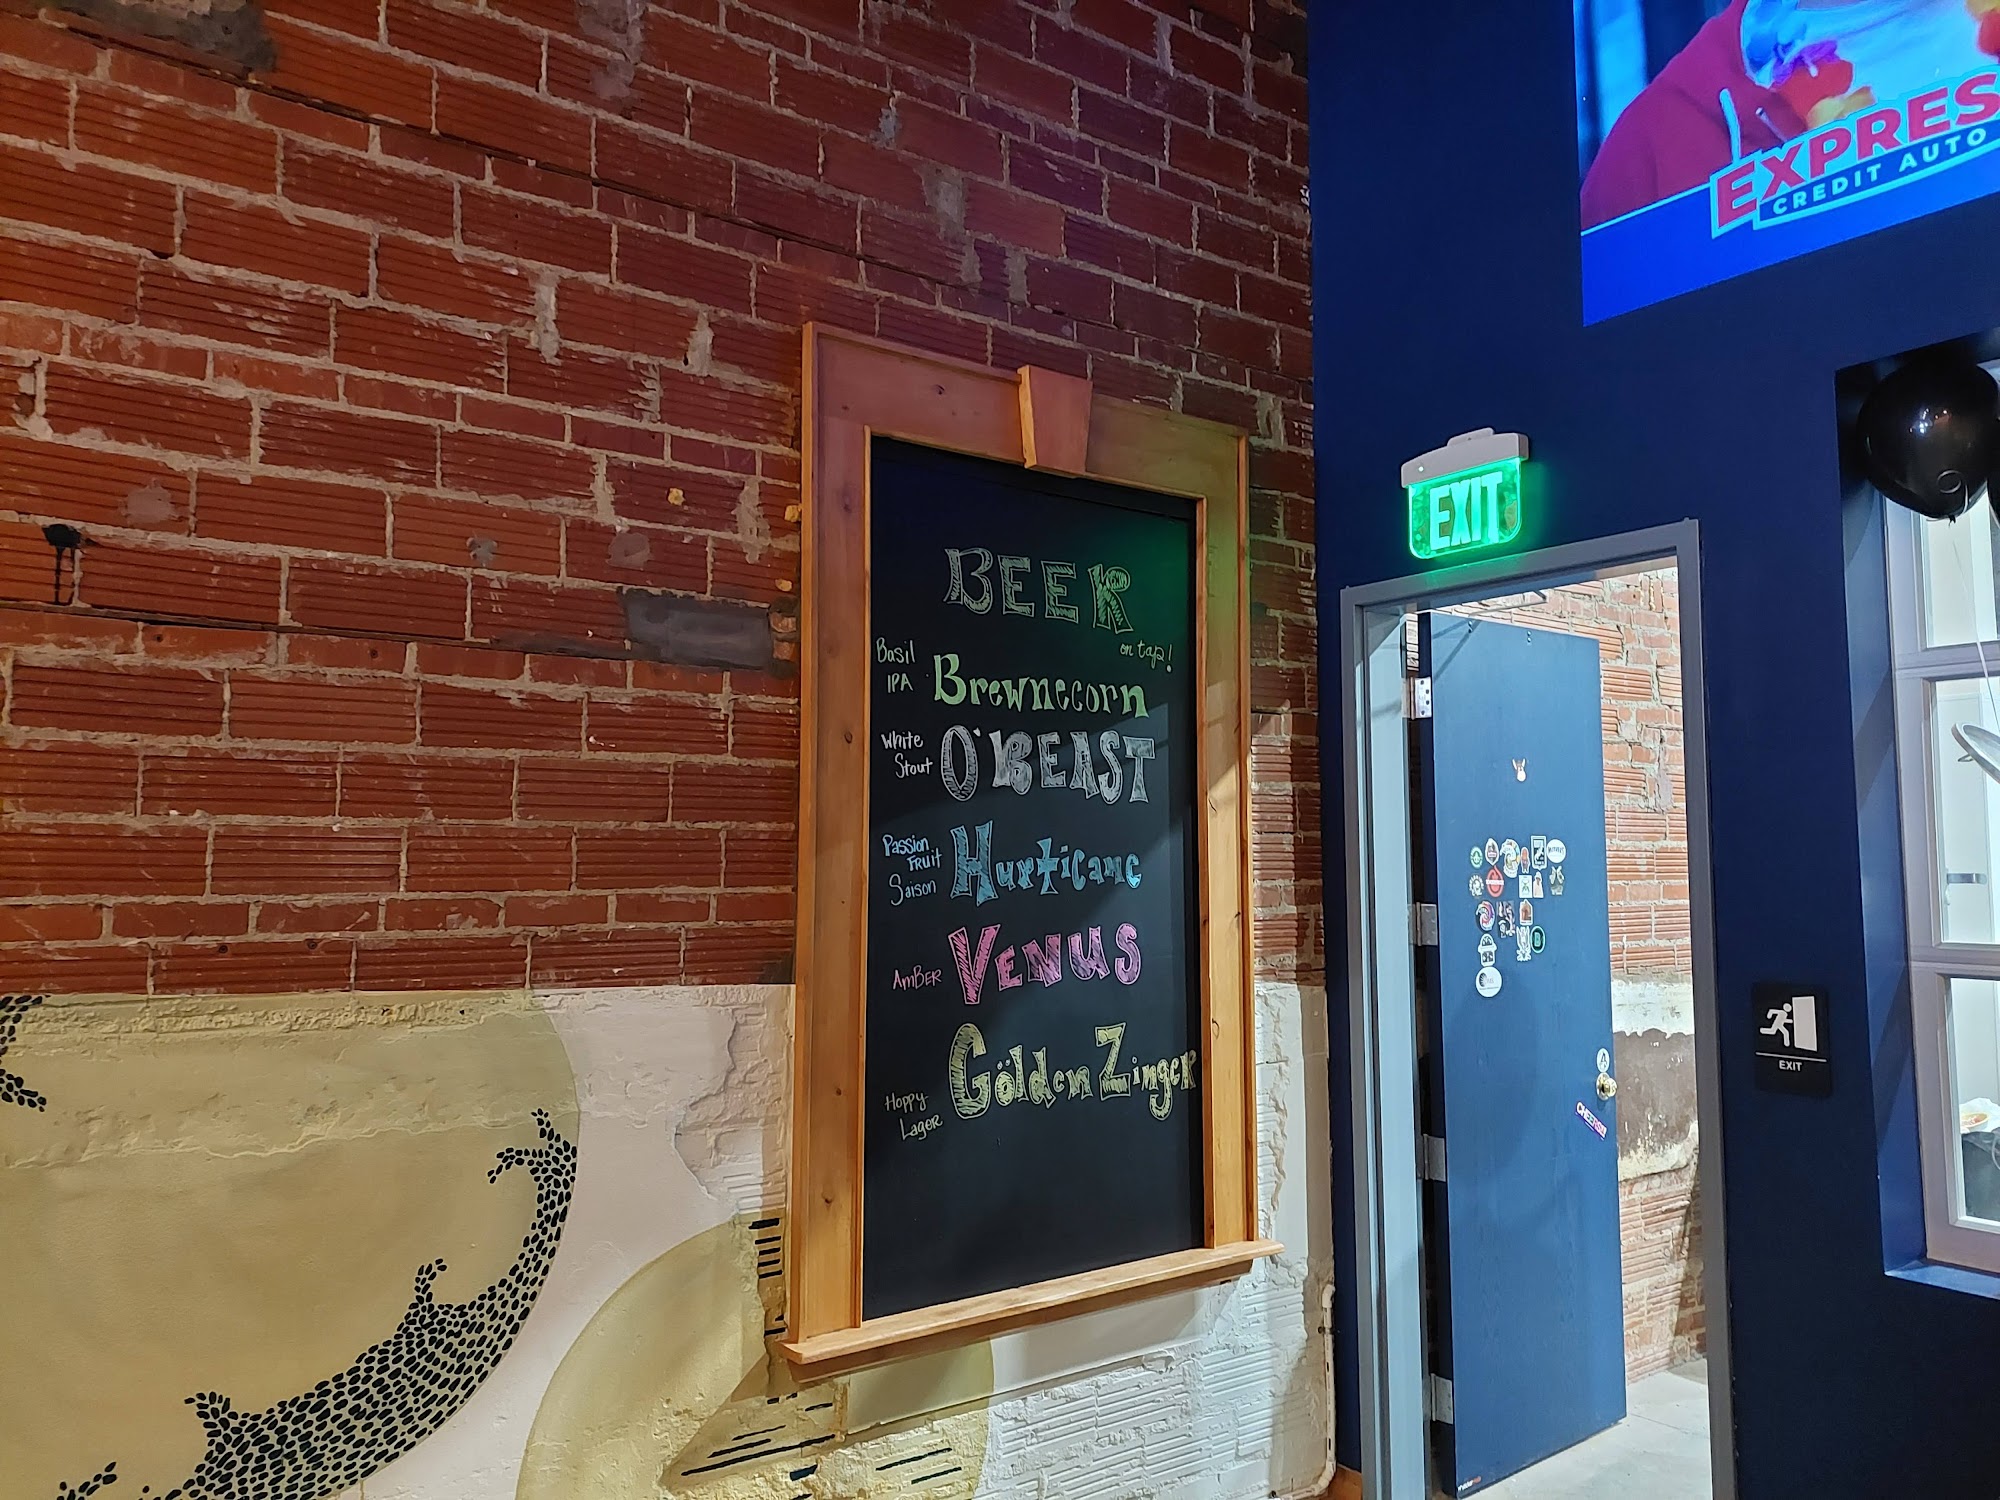 EXPRES
CREDIT AUTO
EXIT
BEER
on tap!
Basil
IPA
Brewnecorn
White
Stout
O'BEAST
Passion
Fruit
Saison
Hurricane
AmBER
VENUS
Hoppy
Lager
Gölden Zinger
EXIT
CHEERS